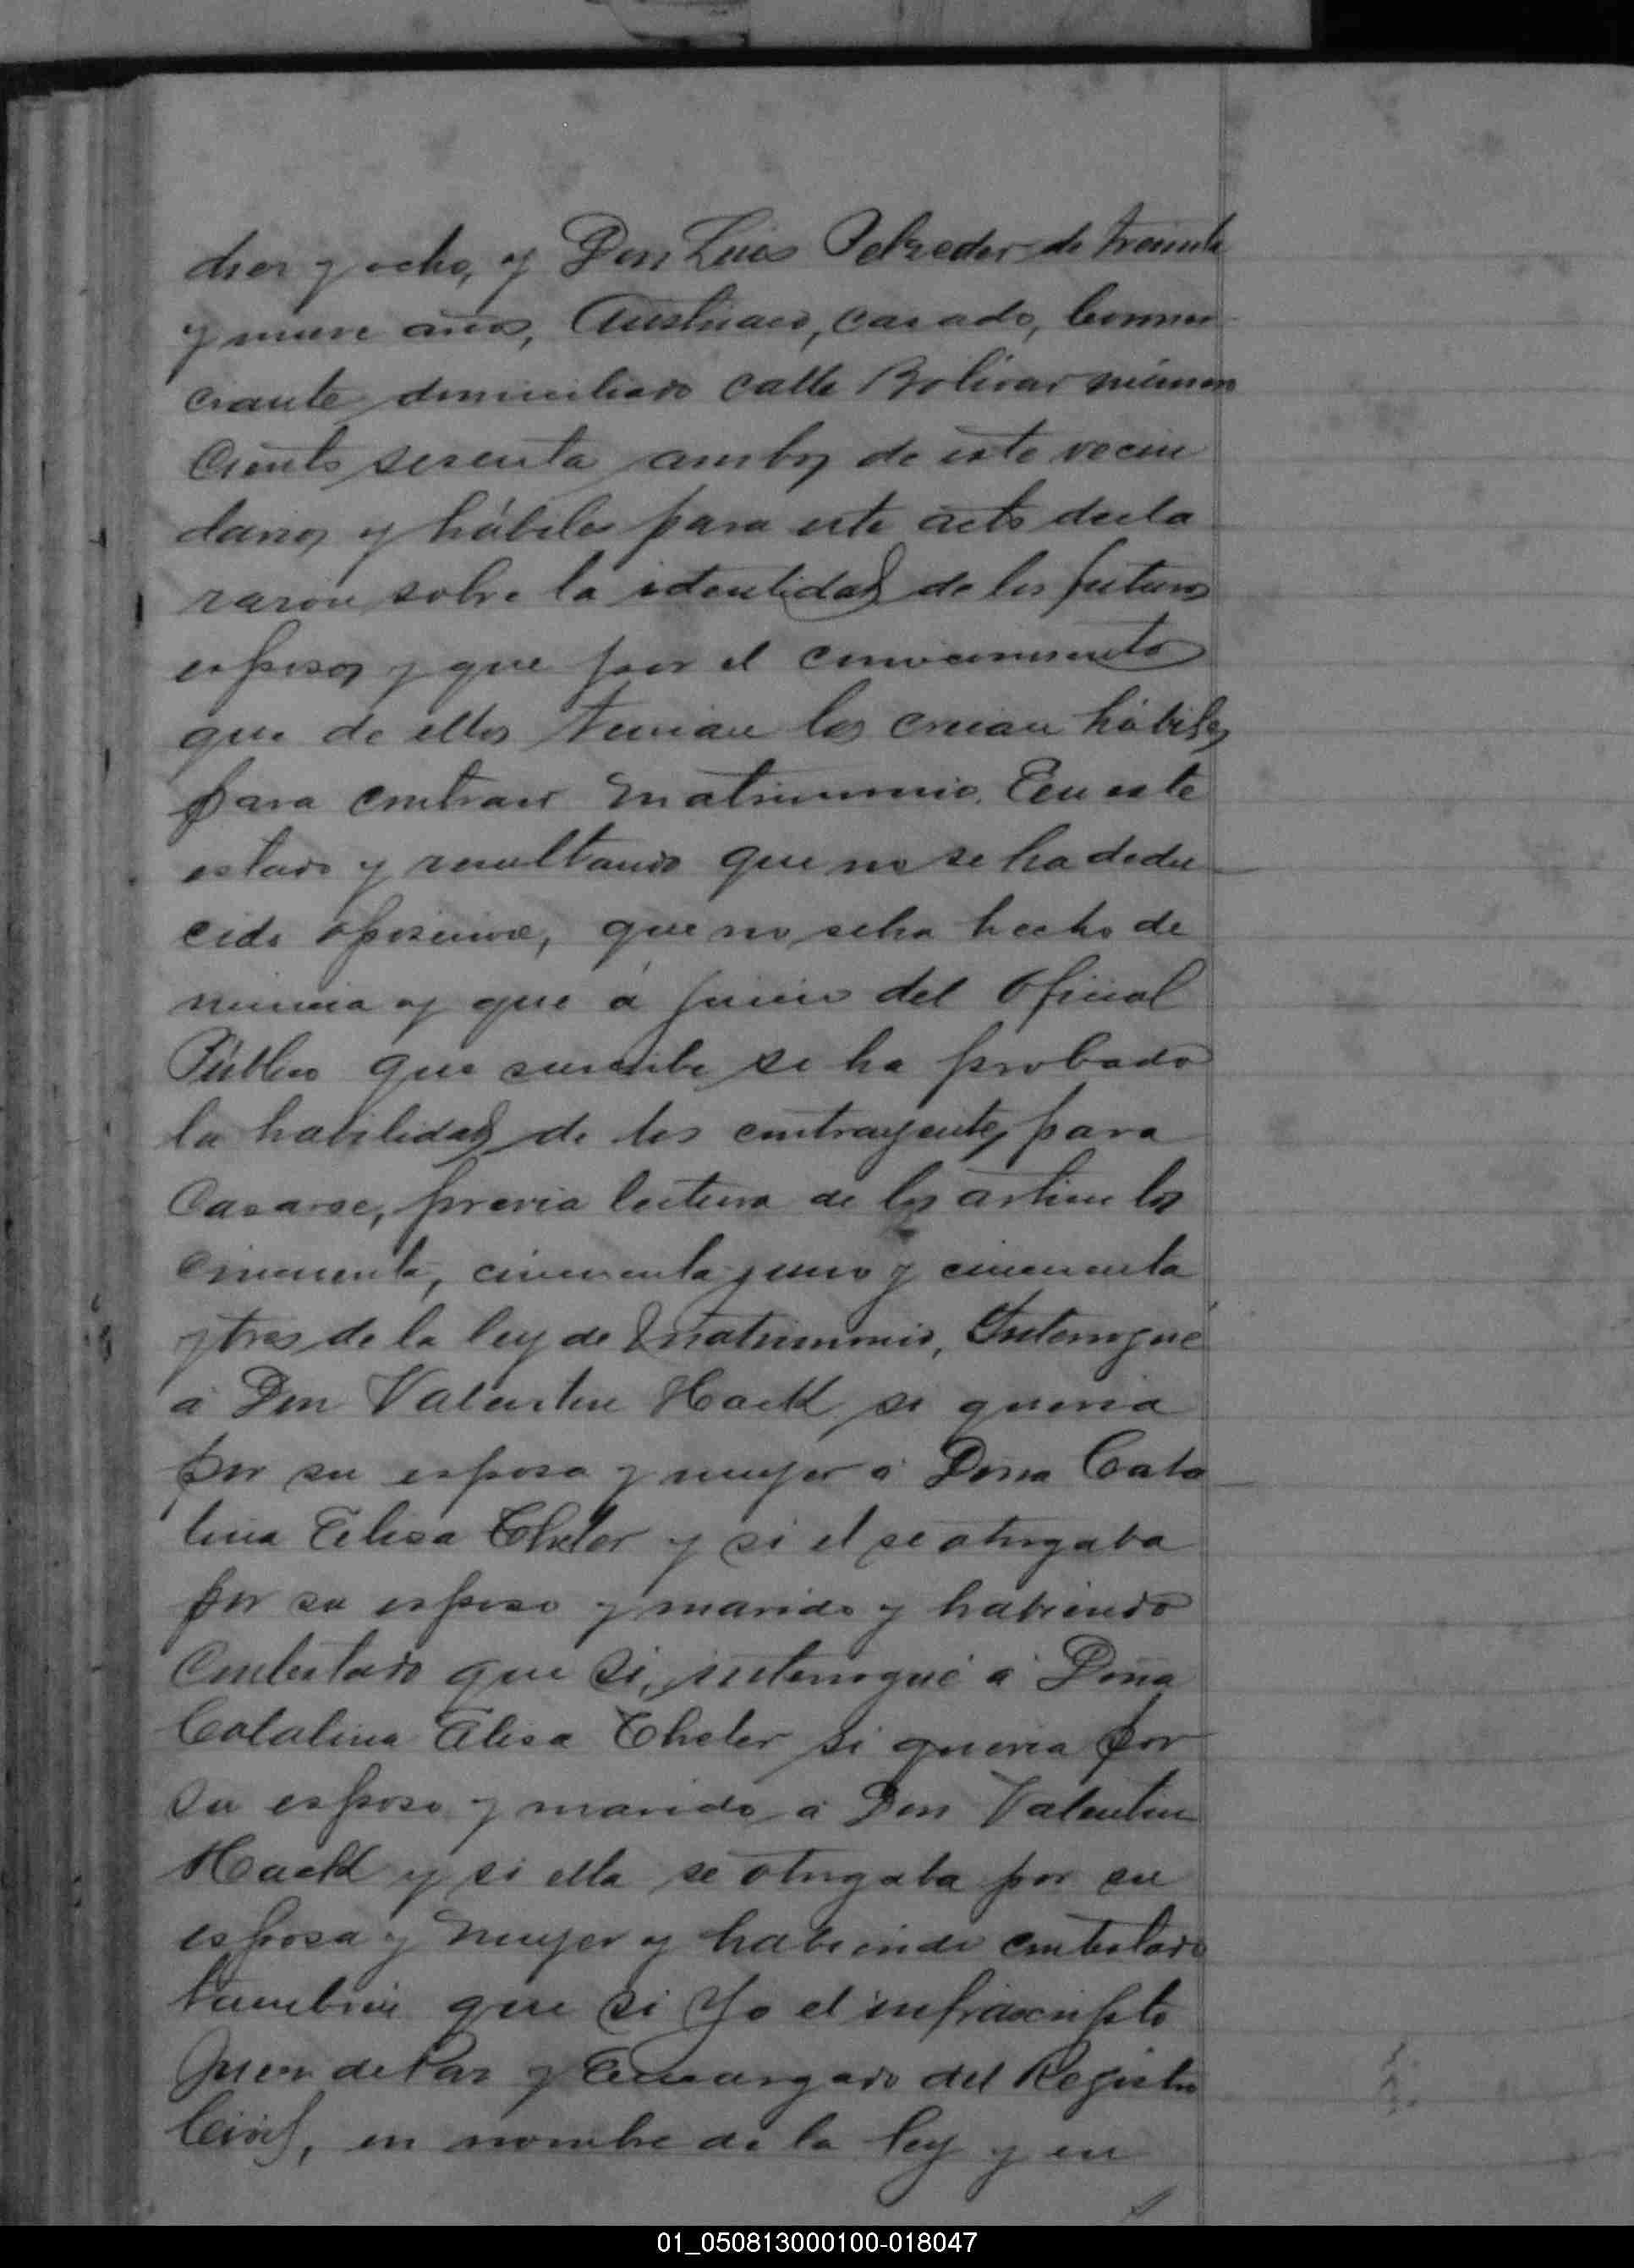 diez y ocho, y Don Luis Pelzeder de treinta
y nueve años, Austriaco, casado, Comer
ciante domiciliado calle Bolívar número
Ciento sesenta ambos de este vecin
dario y hábiles para este acto decla
raron sobre la identidad de los futuros
esposos y que por el conocimiento
que de ellos tenian los creian hábiles
para contraer Matrimonio. En este
estado y resultando que no se ha dedu
cido oposicion, que no se ha hecho de
nuncia y que á juicio del Oficial
Público que suscribe se ha probado
la habilidad de los contrayentes para
Casarse, previa lectura de los articulos
cincuenta, cincuenta y uno y cincuenta
y tres de la ley de Matrimonio, Interrogué
á Don Valentin Hackl si queria
por su esposa y mujer á Doña Cata
lina Elisa Theler y si el se otorgaba
por su esposo y marido y habiendo
Contestado que si, interrogué á Doña
Catalina Elisa Theler si queria por
su esposo y marido á Don Valentin
Hackl y si ella se otorgaba por su
esposa y mujer y habiendo contestado
tambien que si Yo el infrascripto
Juez de Paz y Encargado del Registro
Civil, en nombre de la ley y en
01_050813000100-018047